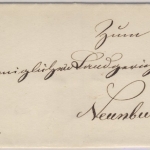 Zum
Königlichen Landgericht
Neunbu